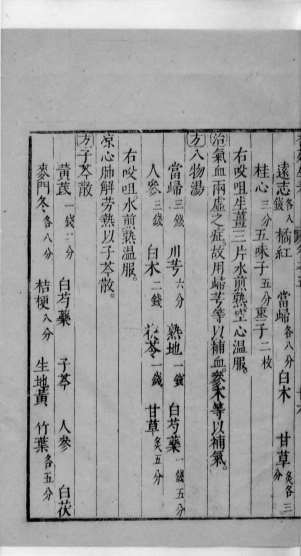 遠志各八錢 橘紅 當歸各八分 白木 甘草炙各三分
桂心三分 五味子五分 棗子二枚
右㕮咀生薑三片水煎熟空心温服。
治氣血兩虛之症。故用歸芎等以補血參朮等以補氣。
方八物湯
當歸三錢 川芎六分 熟地一錢 白芍藥一錢五分
人參三錢 白木二錢 茯苓一錢 甘草炙五分
右㕮咀水煎熟温服。
凉心肺解勞熱以子芩散。
方子芩散
黃芪一錢二分 白芍藥 子芩 人參 白茯
麥門冬各八分 桔梗八分 生地黃 竹葉各五分